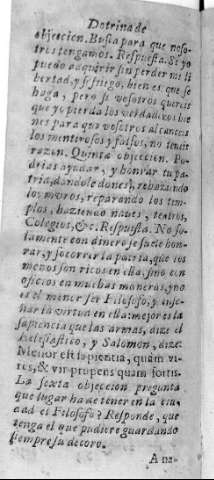 Dotrina de
objecion. Busca para que noso-
tros tengamos. Respuesta. Si yo
puedo adquirir sin perder mi li
bertad, y sosiego, bien es que se
haga, pero si vosotros quereis
que yo pierda los verdaderos bie
nes para que vosotros alcanceis
los mentirosos y falsos, no teneis
razon. Quinta objecion. Po-
drias ayudar, y honrar tu pa-
tria, dandole dones, rehaziendo
los muros, reparando los tem-
plos, haziendo naues, teatros,
Colegios, &c. Respuesta. No so-
lamente con dinero se suele hon-
rar, y socorrer la patria, que los
menos son ricos en ella, sino con
oficios en muchas maneras, y no
es el menor ser Filosofo, y ense-
ñar la virtud en ella: mejor es la
sapiencia que las armas, dize el
Eclesiastico, y Salomon, dize:
Melior est sapientia, quàm vi-
res, & vir prudens quam fortis.
La sexta objecion pregunta
que lugar ha de tener en la ciu-
dad el Filosofo? Responde, que
tenga el que pudiere guardando
siempre su decoro.